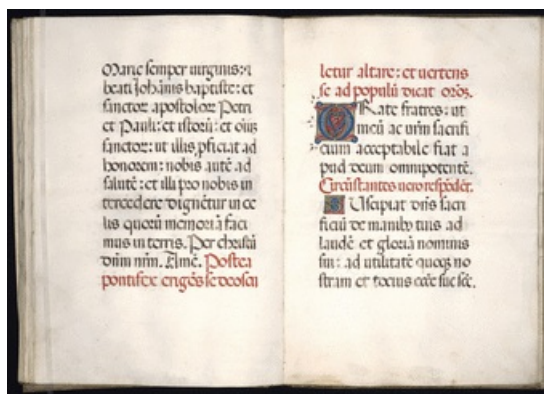 Marie semper uirginis: ⁊
beati Johānis baptiste: et
sanctoꝝ apostoloꝝ Petri
et Pauli: et istorū: et oīuꝫ
sanctoꝝ: ut illis ꝓficiat ad
honorem: nobis autē ad
salutē: et illi pro nobis in
tercedere dignētur in ce
lis quorū memoriā faci
mus in terris. Per christū
dn̄m nr̄m. Amē. Postea
pontifex erigēs se deoscu
letur altare: et uertens
se ad populū dicat
ORate fratres: ut
meū ac ur̄m sacrifi
cium acceptabile fiat a
pud deum omnipotētē.
Circūstantes uero respōdēt.
SUscipiat dn̄s sacri
ficiū de manibꝰ tuis ad
laudē et gloriā nominis
sui: ad utilitatē quoqꝫ no
stram et tocius ecc̄e sue sc̄e.